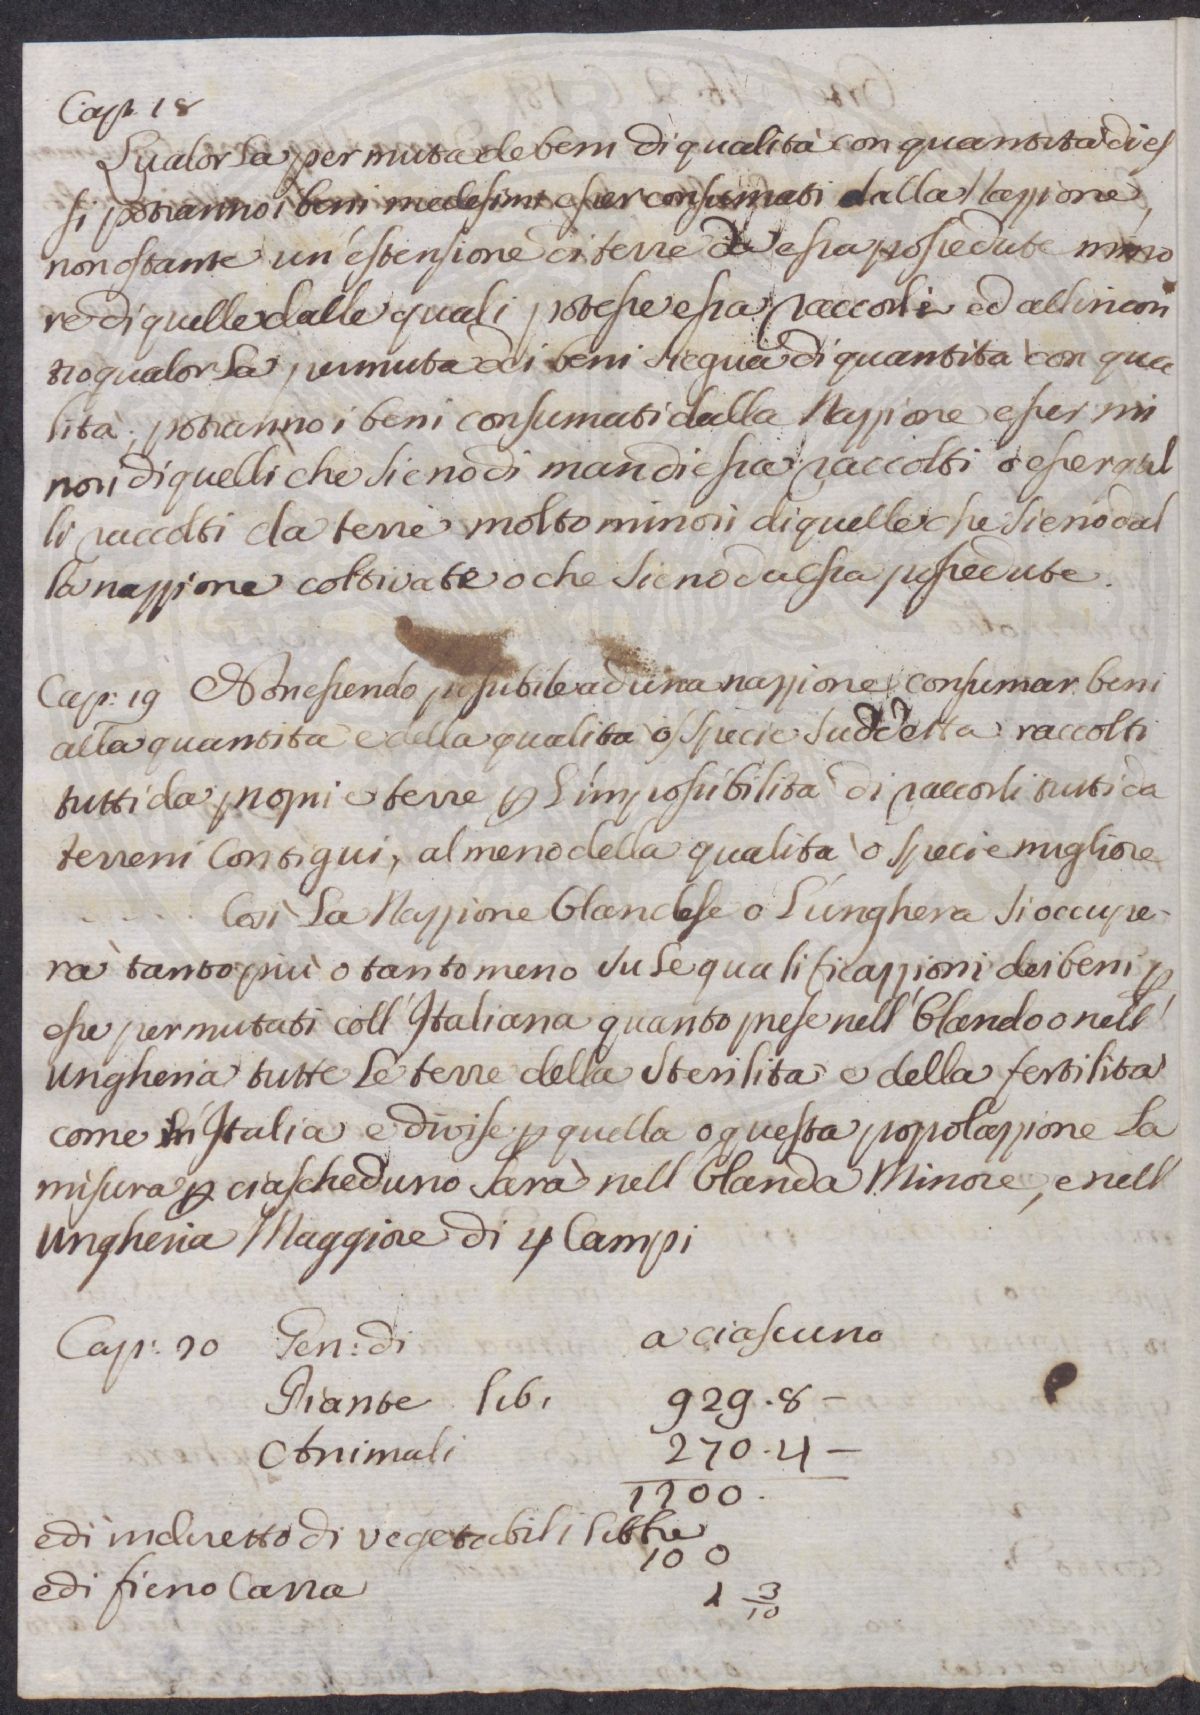 Cap: 18
Qualor la permuta de beni di qualità con quantità di es
si potranno i beni medesimi esser consumati dalla Nazzione,
non ostante un'estensione di terre da essa possedute mino
re di quelle dalle quali potesse essa raccorli ed all'incon
tro qualor la permuta di beni siegua di quantità con qua
lità, potranno i beni consumati dalla Nazzione esser mi
nori di quelli che sieno di man di essa raccolti o esser quel
li raccolti da terre molto minori di quelle che sieno dal
la nazzione coltivate o che sieno da essa possedute.
Cap: 19 Non essendo possibile ad una nazzione consumar beni
alla quantità e della qualità o specie suddetta raccolti
tutti da proprie terre p l'impossibilità di raccorli tutti da
terreni contigui, almeno della qualità o specie migliore
Così la Nazzione Olandese o l'Unghera si occupe-
rà tanto più o tanto meno su le qualificazzioni dei beni p
esse permutati coll'Italiana quanto prese nell'Olanda o nell'
Ungheria tutte le terre della sterilità e della fertilità
come in Italia e divise p quella o questa popolazzione la
misura p ciascheduno sarà nell'Olanda Minore, e nell'
Ungheria Maggiore di 4 Campi
Cap: 20 Gen: di a ciascuno
Piante lib. 929.8 –
Animali 270.4 –
1200.
e di indiretto di vegetabili libbre
100
e di fieno Carra 1 3/10